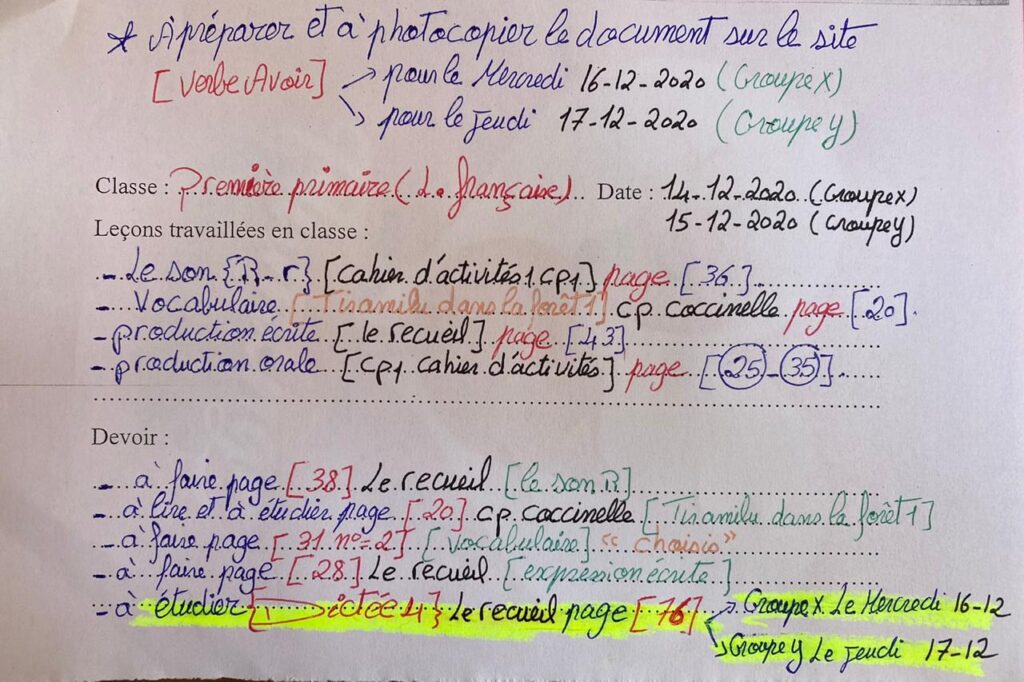 * À préparer et à photocopier le document sur le site
[Verbe Avoir] → pour le Mercredi 16-12-2020 (Groupe X)
↘ pour le jeudi 17-12-2020 (Groupe y)
Classe : Première primaire (L. française) Date : 14-12-2020 (Groupe x)
15-12-2020 (Groupe y)
Leçons travaillées en classe :
- Le son {R - r} [cahier d'activités 1 cp1] page [36]
- Vocabulaire [Tiramilu dans la forêt 1] cp coccinelle page [20].
- production écrite [le recueil] page [43]
- production orale [cp1 cahier d'activités] page [25 - 35]
Devoir :
- à faire page [38] Le recueil [le son R]
- à lire et à étudier page [20] cp coccinelle [Tiramilu dans la forêt 1]
- à faire page [31 n°=2] [vocabulaire] « choisis »
- à faire page [28] Le recueil [expression écrite]
- à étudier [Dictée 4] Le recueil page [76] → Groupe X Le Mercredi 16-12
↘ Groupe y Le jeudi 17-12